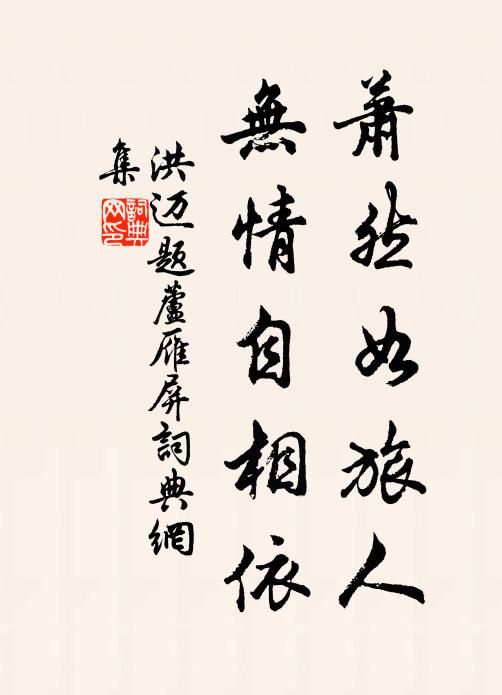 蕭然如旅人
無情自相依
洪迈題蘆雁屏詞典網
集
詞典网印